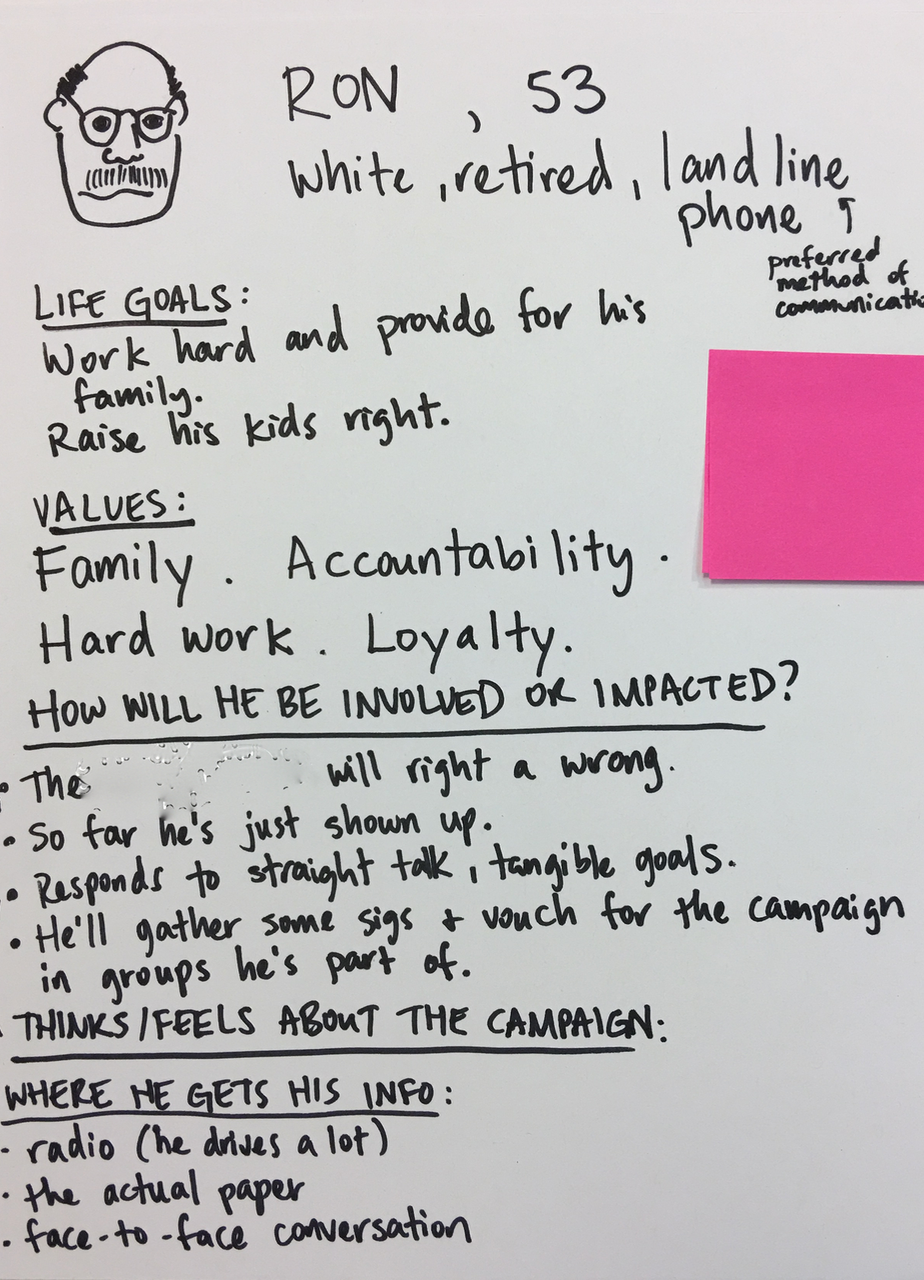 RON , 53
white, retired, land line
phone ↑
preferred
method of
LIFE GOALS:
Work hard and provide for his
family.
Raise his kids right.
VALUES:
Family. Accountability.
Hard work. Loyalty.
HOW WILL HE BE INVOLVED OR IMPACTED?
• The will right a wrong.
• So far he's just shown up.
• Responds to straight talk, tangible goals.
• He'll gather some sigs + vouch for the campaign
in groups he's part of.
THINKS/FEELS ABOUT THE CAMPAIGN:
WHERE HE GETS HIS INFO:
- radio (he drives a lot)
· the actual paper
. face-to-face conversation